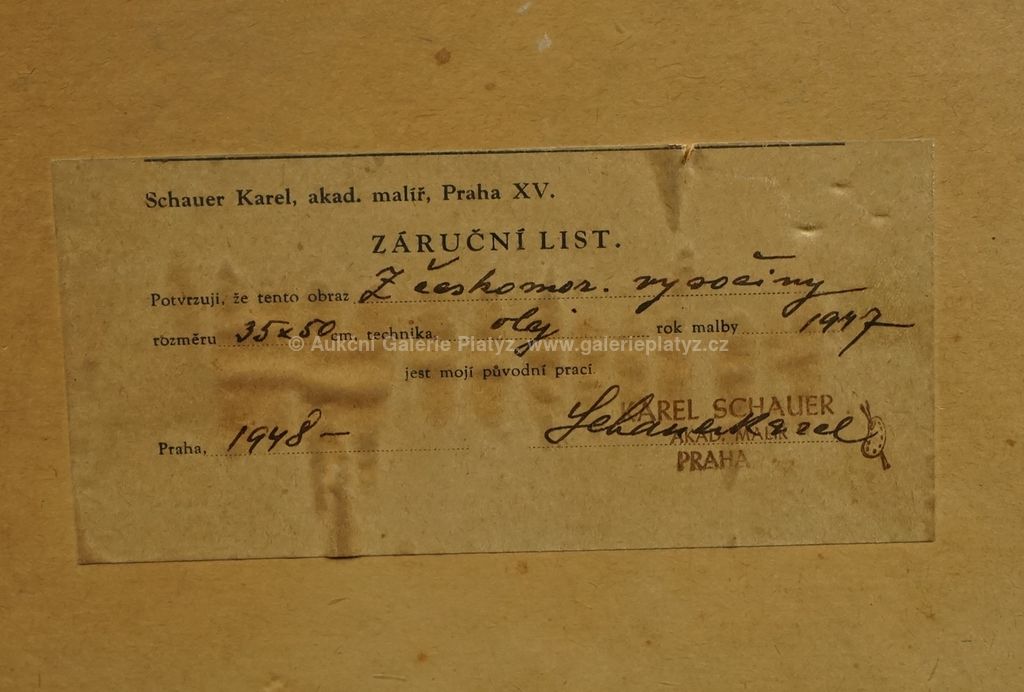 Schauer Karel, akad. malíř, Praha XV.
ZÁRUČNÍ LIST.
Potvrzuji, že tento obraz Z českomor. vysočiny
rozměru 35x50 cm, technika olej rok malby 1947
© Aukční Galerie Platýz, www.galerieplatyz.cz
jest mojí původní prací.
KAREL SCHAUER
Praha, 1948 – Schauer Karel
AKAD. MALÍŘ
PRAHA